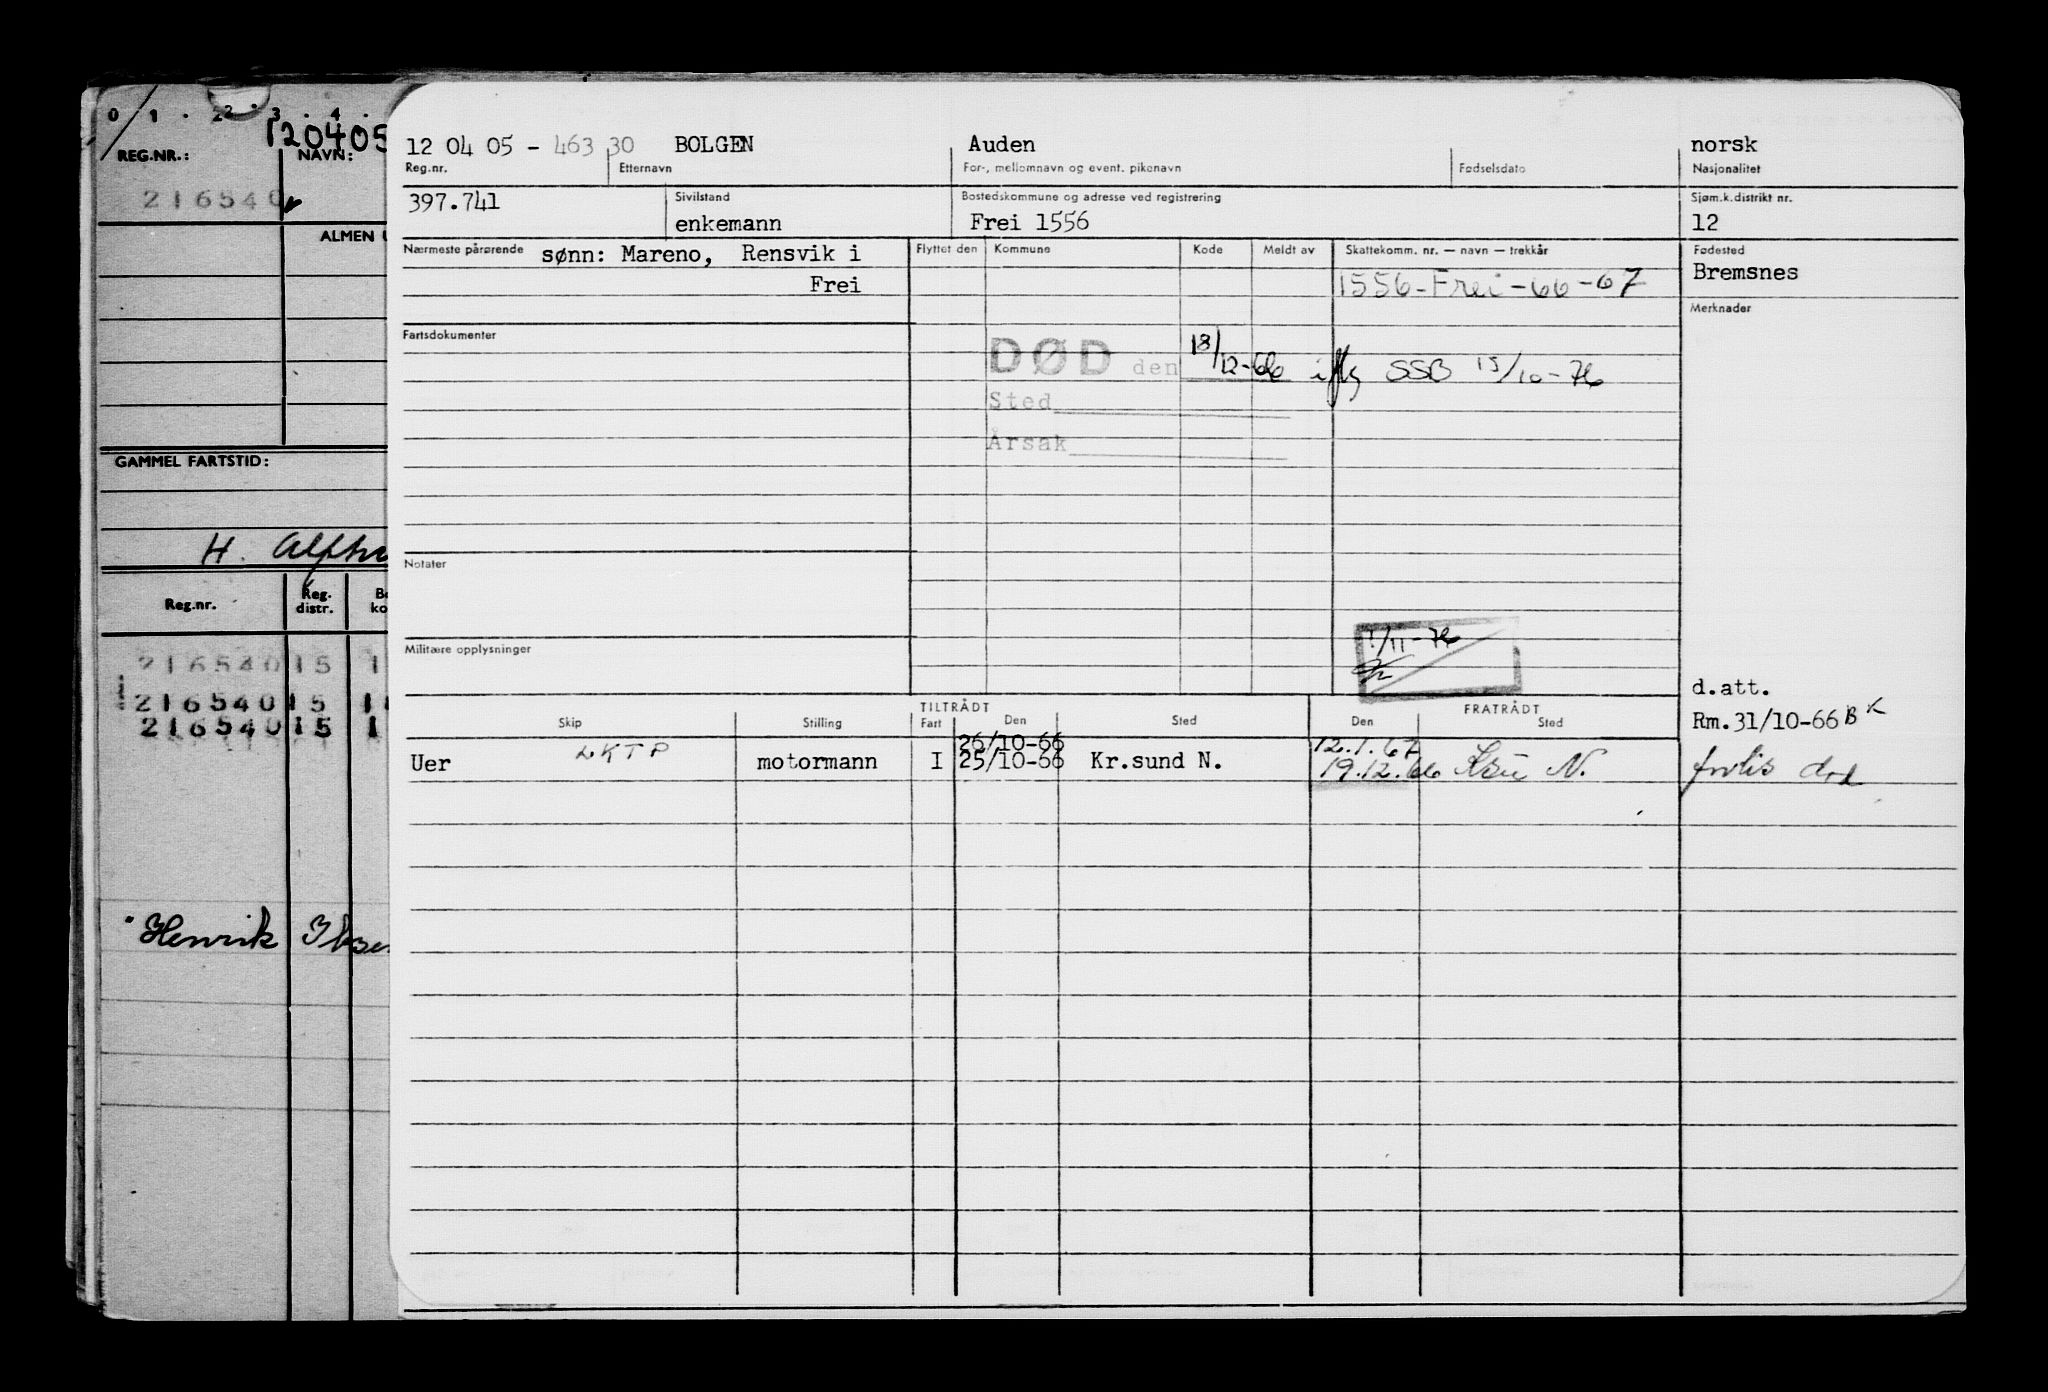 0 / 1 . 2 2 . 3 . 4 .
120405
REG.NR.: NAVN:
216540
ALMEN U
GAMMEL FARTSTID:
H.
Reg.nr. Reg. distr.
216540 15 1
216540 15 1
216540 15 1
Henrik Ibsen
12 04 05 - 463 30 BOLGEN Auden norsk
Reg.nr. Etternavn For-, mellomnavn og event. pikenavn Fødselsdato Nasjonalitet
397.741 Sivilstand Bostedskommune og adresse ved registrering Sjøm.k.distrikt nr.
enkemann Frei 1556 12
Nærmeste pårørende sønn: Mareno, Rensvik i Flyttet den Kommune Kode Meldt av Skattekomm. nr. — navn — trekkår Fødested
Bremsnes
Frei 1556-Frei-66-67
Merknader
Fartsdokumenter
DØD den 18/12-66 iflg SSB 15/10-76
Sted
Årsak
Notater
1/11-76
Militære opplysninger
d.att.
TILTRÅDT FRATRÅDT
Skip Stilling Fart Den Sted Den Sted
Rm.31/10-66 BK
26/10-66 12.1.67
Uer LKTP motormann I 25/10-66 Kr.sund N. 19.12.66 Ksu N. forlis død